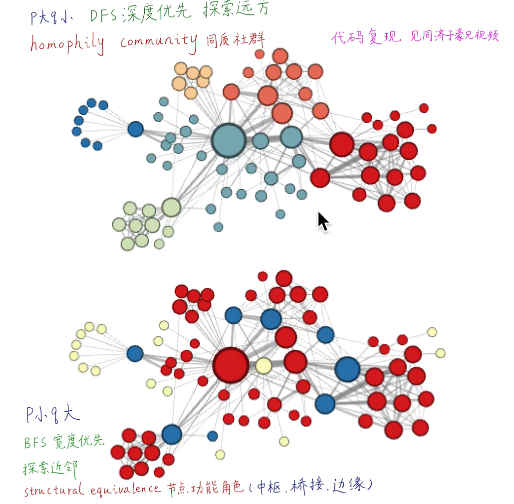 P大q小 DFS 深度优先 探索远方
homophily community 同质社群
代码复现 见同济子豪兄视频
P小q大
BFS 宽度优先
探索近邻
structural equivalence 节点功能角色(中枢.桥接.边缘)